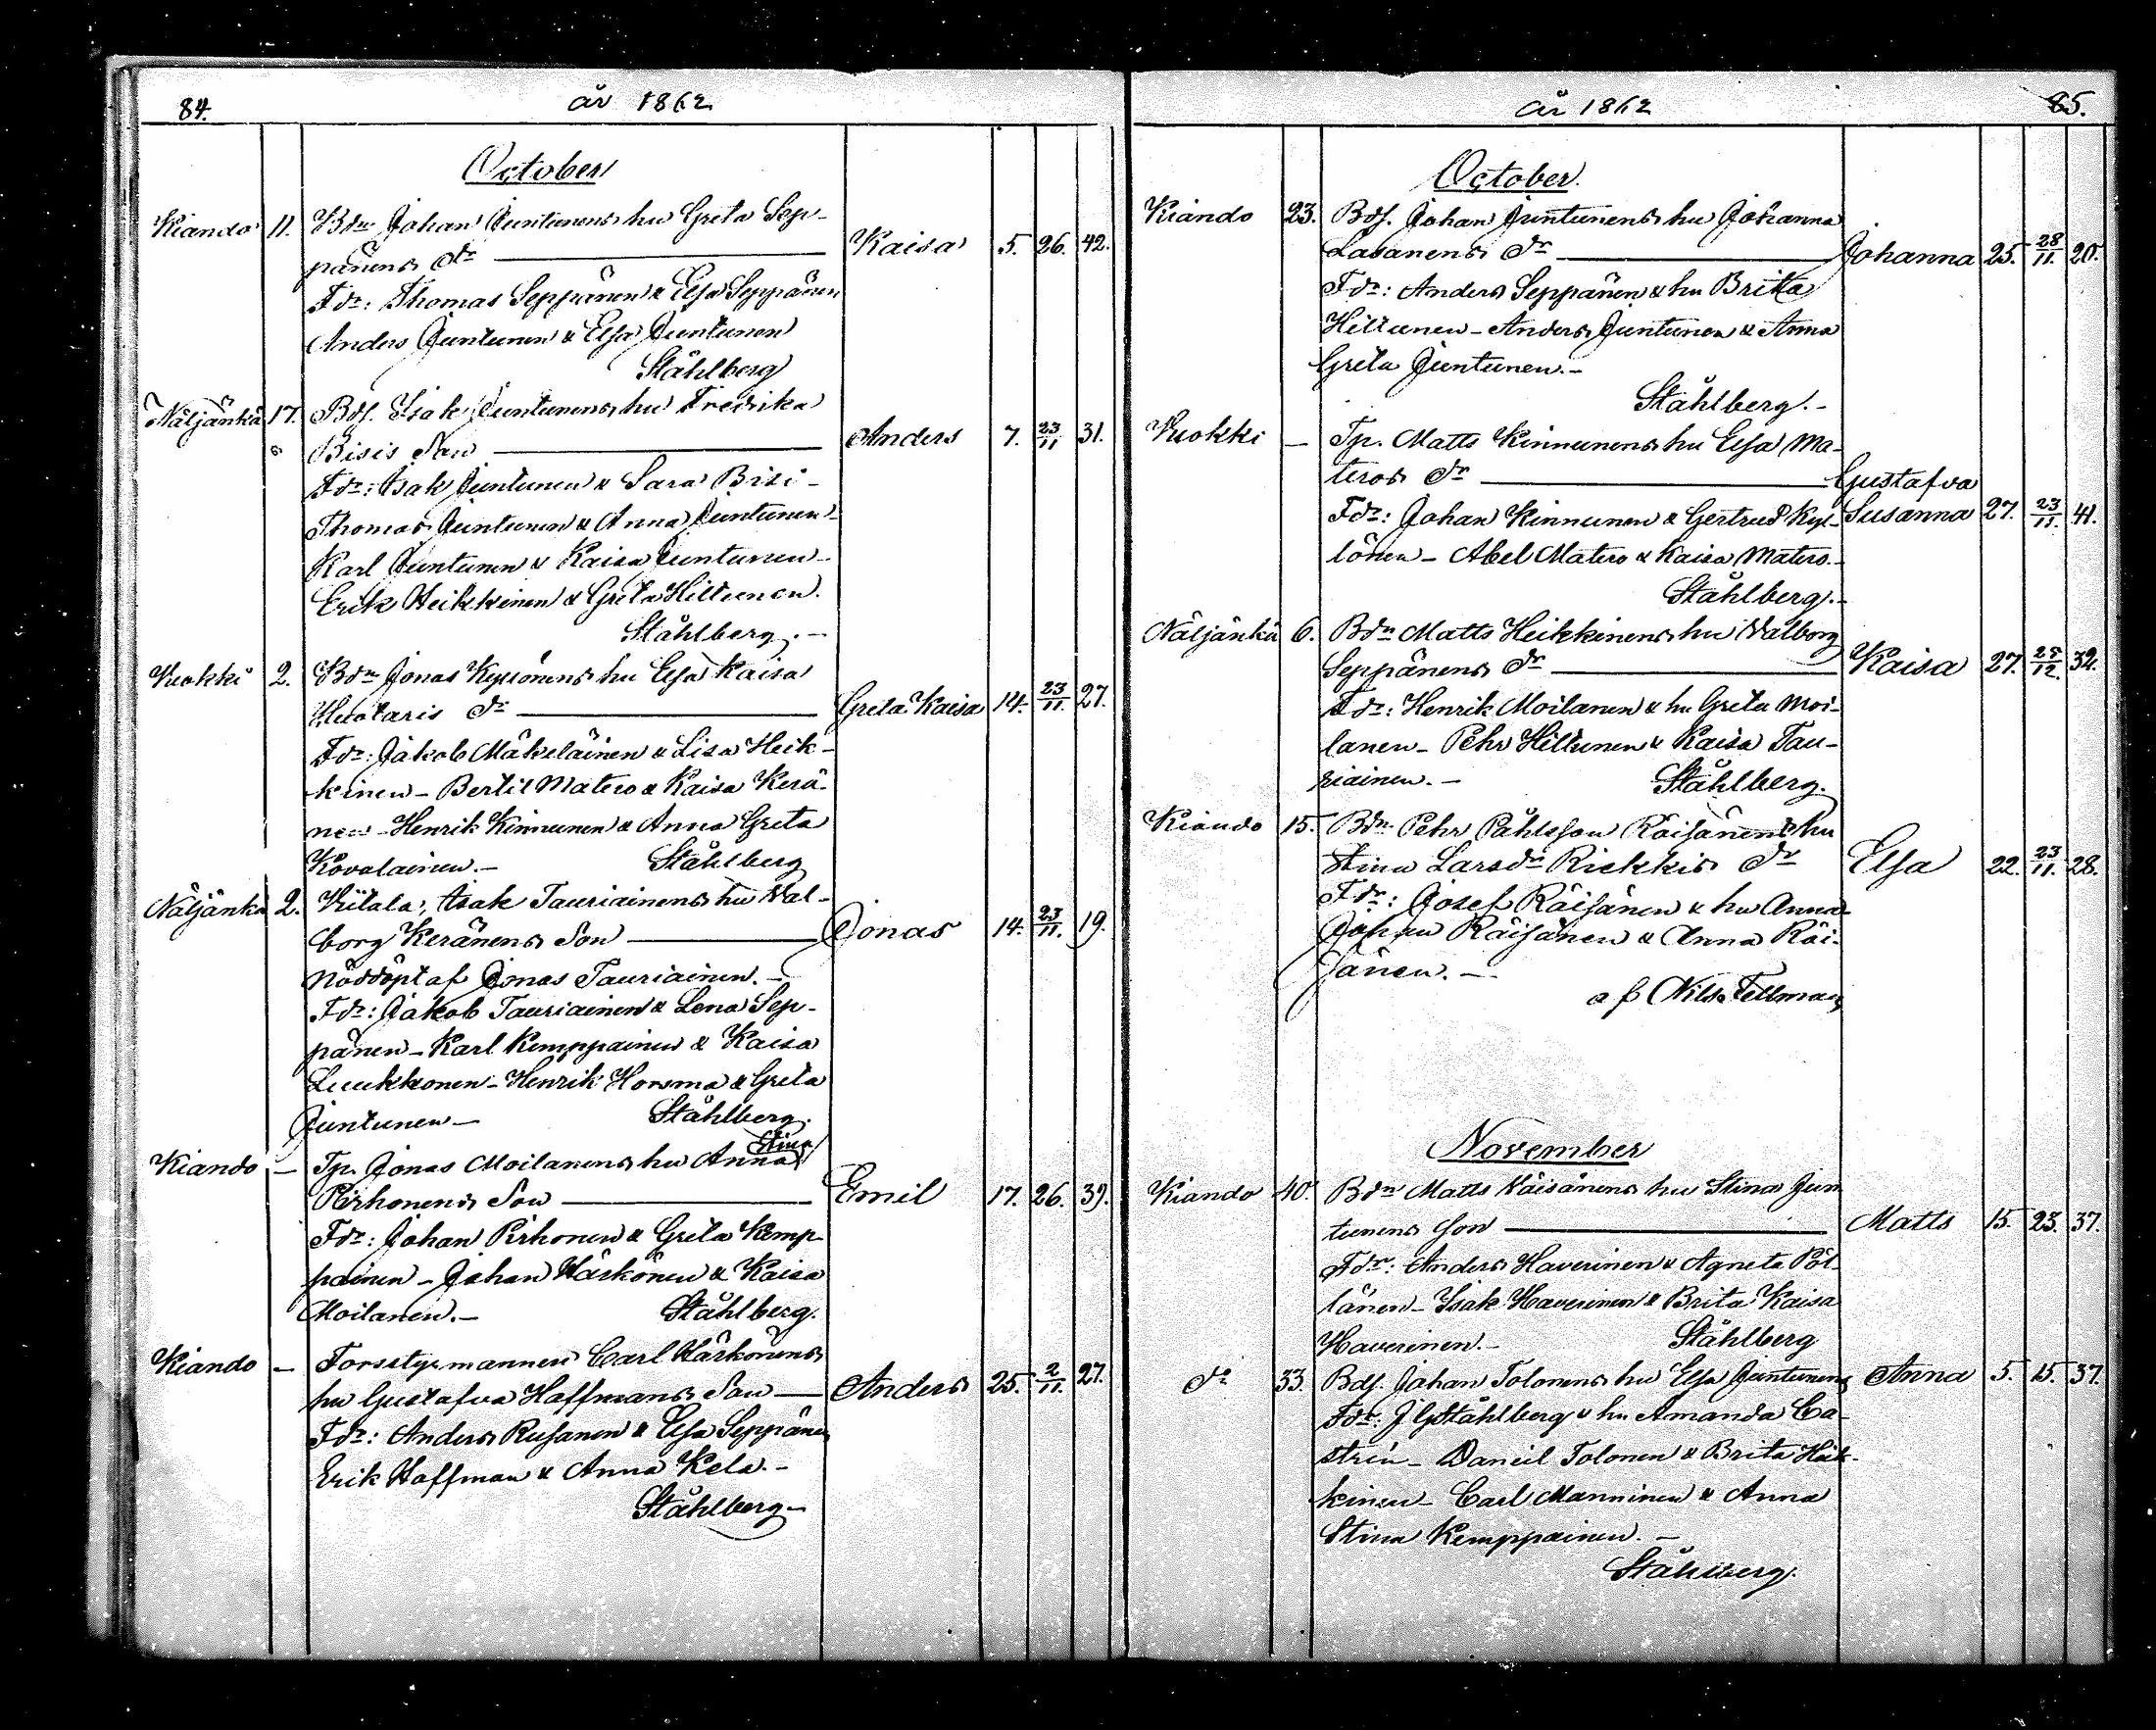 84. år 1862
October
Kiando 11. Bdn Johan Juntunens hu Greta Sep-
pänens dr Kaisa 5. 26. 42.
Fdr: Thomas Seppänen & Elsa Seppänen
Anders Juntunen & Elsa Juntunen
Ståhlberg
Näljänkä 17. Bdf. Isak Juntunens hu Fredrika
Bisis Son Anders 7. 23/11 31.
Fdr: Isak Juntunen & Sara Bisi-
Thomas Juntunen & Anna Juntunen-
Karl Juntunen & Kaisa Juntunen-
Erik Heikkinen & Greta Hiltunen.
Ståhlberg.-
Kuokki 2. Bdn Jonas Kyllönens hu Elsa Kaisa
Huotaris dr Greta Kaisa 14. 23/11. 27.
Fdr: Jakob Mäkeläinen & Lisa Heik-
kinen - Bertil Matero & Kaisa Kerä-
nen - Henrik Kinnunen & Anna Greta
Kovalainen.- Ståhlberg
Näljänkä 2. Kiitala, Isak Tauriainens hu Wal-
borg Keränens Son Jonas 14. 23/11. 19.
Nöddöpt af Jonas Tauriainen.-
Fdr: Jakob Tauriainen & Lena Sep-
pänen - Karl Kemppainen & Kaisa
Luukkonen - Henrik Horsma & Greta
Juntunen - Ståhlberg.
Stina
Kiando - Tp. Jonas Moilanens hu Anna
Pirhonens Son Emil 17. 26. 39.
Fdr: Johan Pirhonen & Greta Kemp-
painen - Johan Härkönen & Kaisa
Moilanen.- Ståhlberg.
Kiando - Forsstyrmannen Carl Härkönens
hu Gustafva Haffmans Son Anders 25. 2/11. 27.
Fdr: Anders Rusanen & Elsa Seppänen
Erik Haffman & Anna Kela.-
Ståhlberg-
år 1862 85.
October.
Kiando 23. Bdf. Johan Juntunens hu Johanna
Labanens dr Johanna 25. 28/11. 20.
Fdr: Anders Seppänen & hu Brita
Hiltunen - Anders Juntunen & Anna
Greta Juntunen.-
Ståhlberg.-
Kuokki - Tp. Matts Kinnunens hu Elsa Ma-
teros dr Gustafva
Fdr: Johan Kinnunen & Gertrud Kyl- Susanna 27. 23/11. 41.
lönen - Abel Matero & Kaisa Matero.-
Ståhlberg.-
Näljänkä 6. Bdn Matts Heikkinens hu Walborg
Seppänens dr Kaisa 27. 28/12. 32.
Fdr: Henrik Moilanen & hu Greta Moi-
lanen - Pehr Hiltunen & Kaisa Tau-
riainen.- Ståhlberg.
Kiando 15. Bdn Pehr Påhlsson Räisänens hu
Stina Larsdr Riekkis dr Elsa 22. 23/11. 28.
Fdr: Josef Räisänen & hu Anna-
Johan Räisänen & Anna Räi-
sänen.-
af Nils Fellman
November
Kiando 40. Bdn Matts Häisänens hu Stina Jun
tunens Son Matts 15. 23. 37.
Fdr: Anders Haverinen & Agneta Pöl-
länen - Isak Haverinen & Brita Kaisa
Haverinen.- Ståhlberg
do 33. Bdf. Johan Tolonens hu Elsa Juntunens Anna 5. 15. 37.
Fdr: J G Ståhlberg & hu Amanda Ca-
strén - Daneil Tolonen & Brita Heik-
kinen - Carl Manninen & Anna
Stina Kemppainen.-
Ståhlberg.